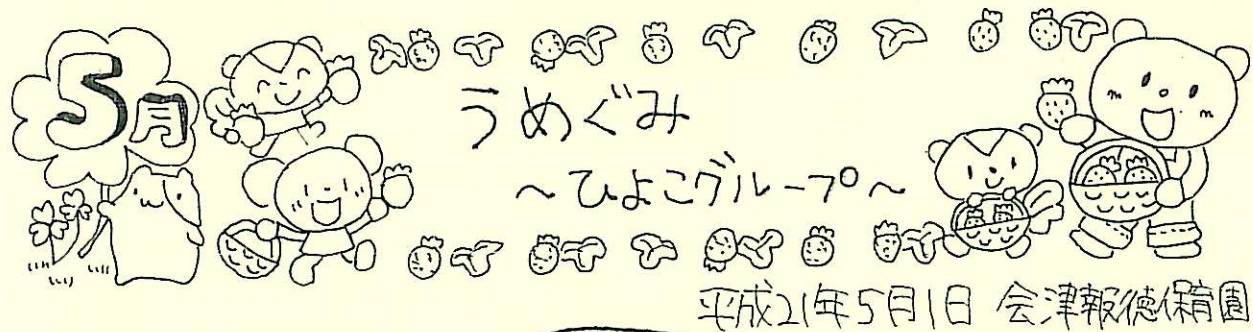 5月
うめぐみ
～ひよこグループ～
平成21年5月1日 会津報徳保育園